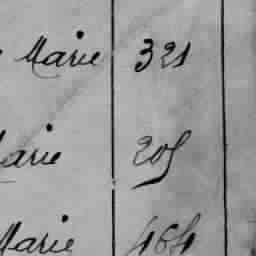 Marie 321
Marie 205
Marie 464